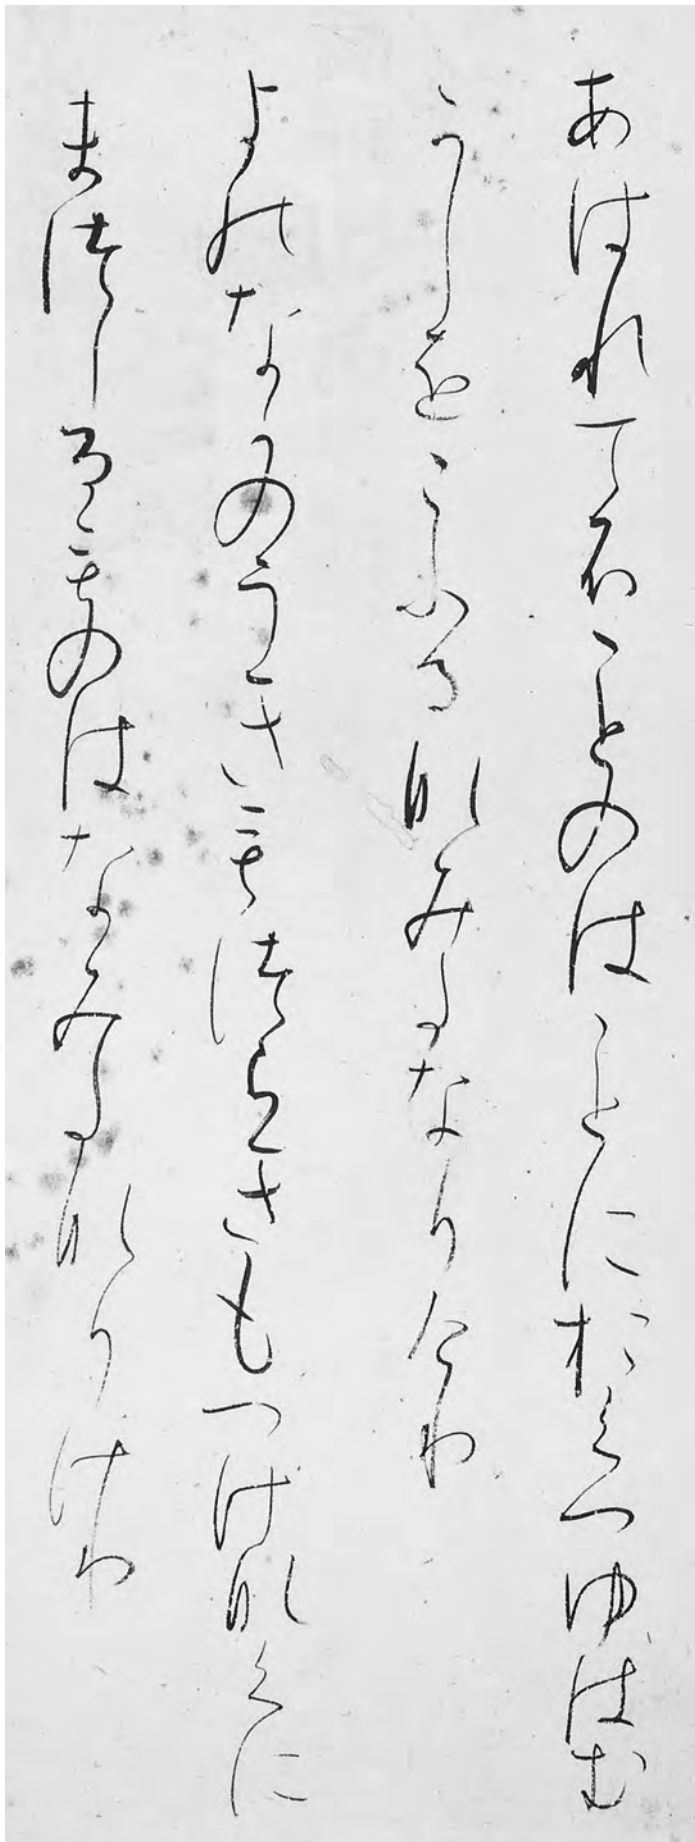 あはれてふことのはことにおくつゆはむ
かしをこふるなみたなりけり
よのなかのうきもつらきもつけなくに
まつしるものはなみたなりけり